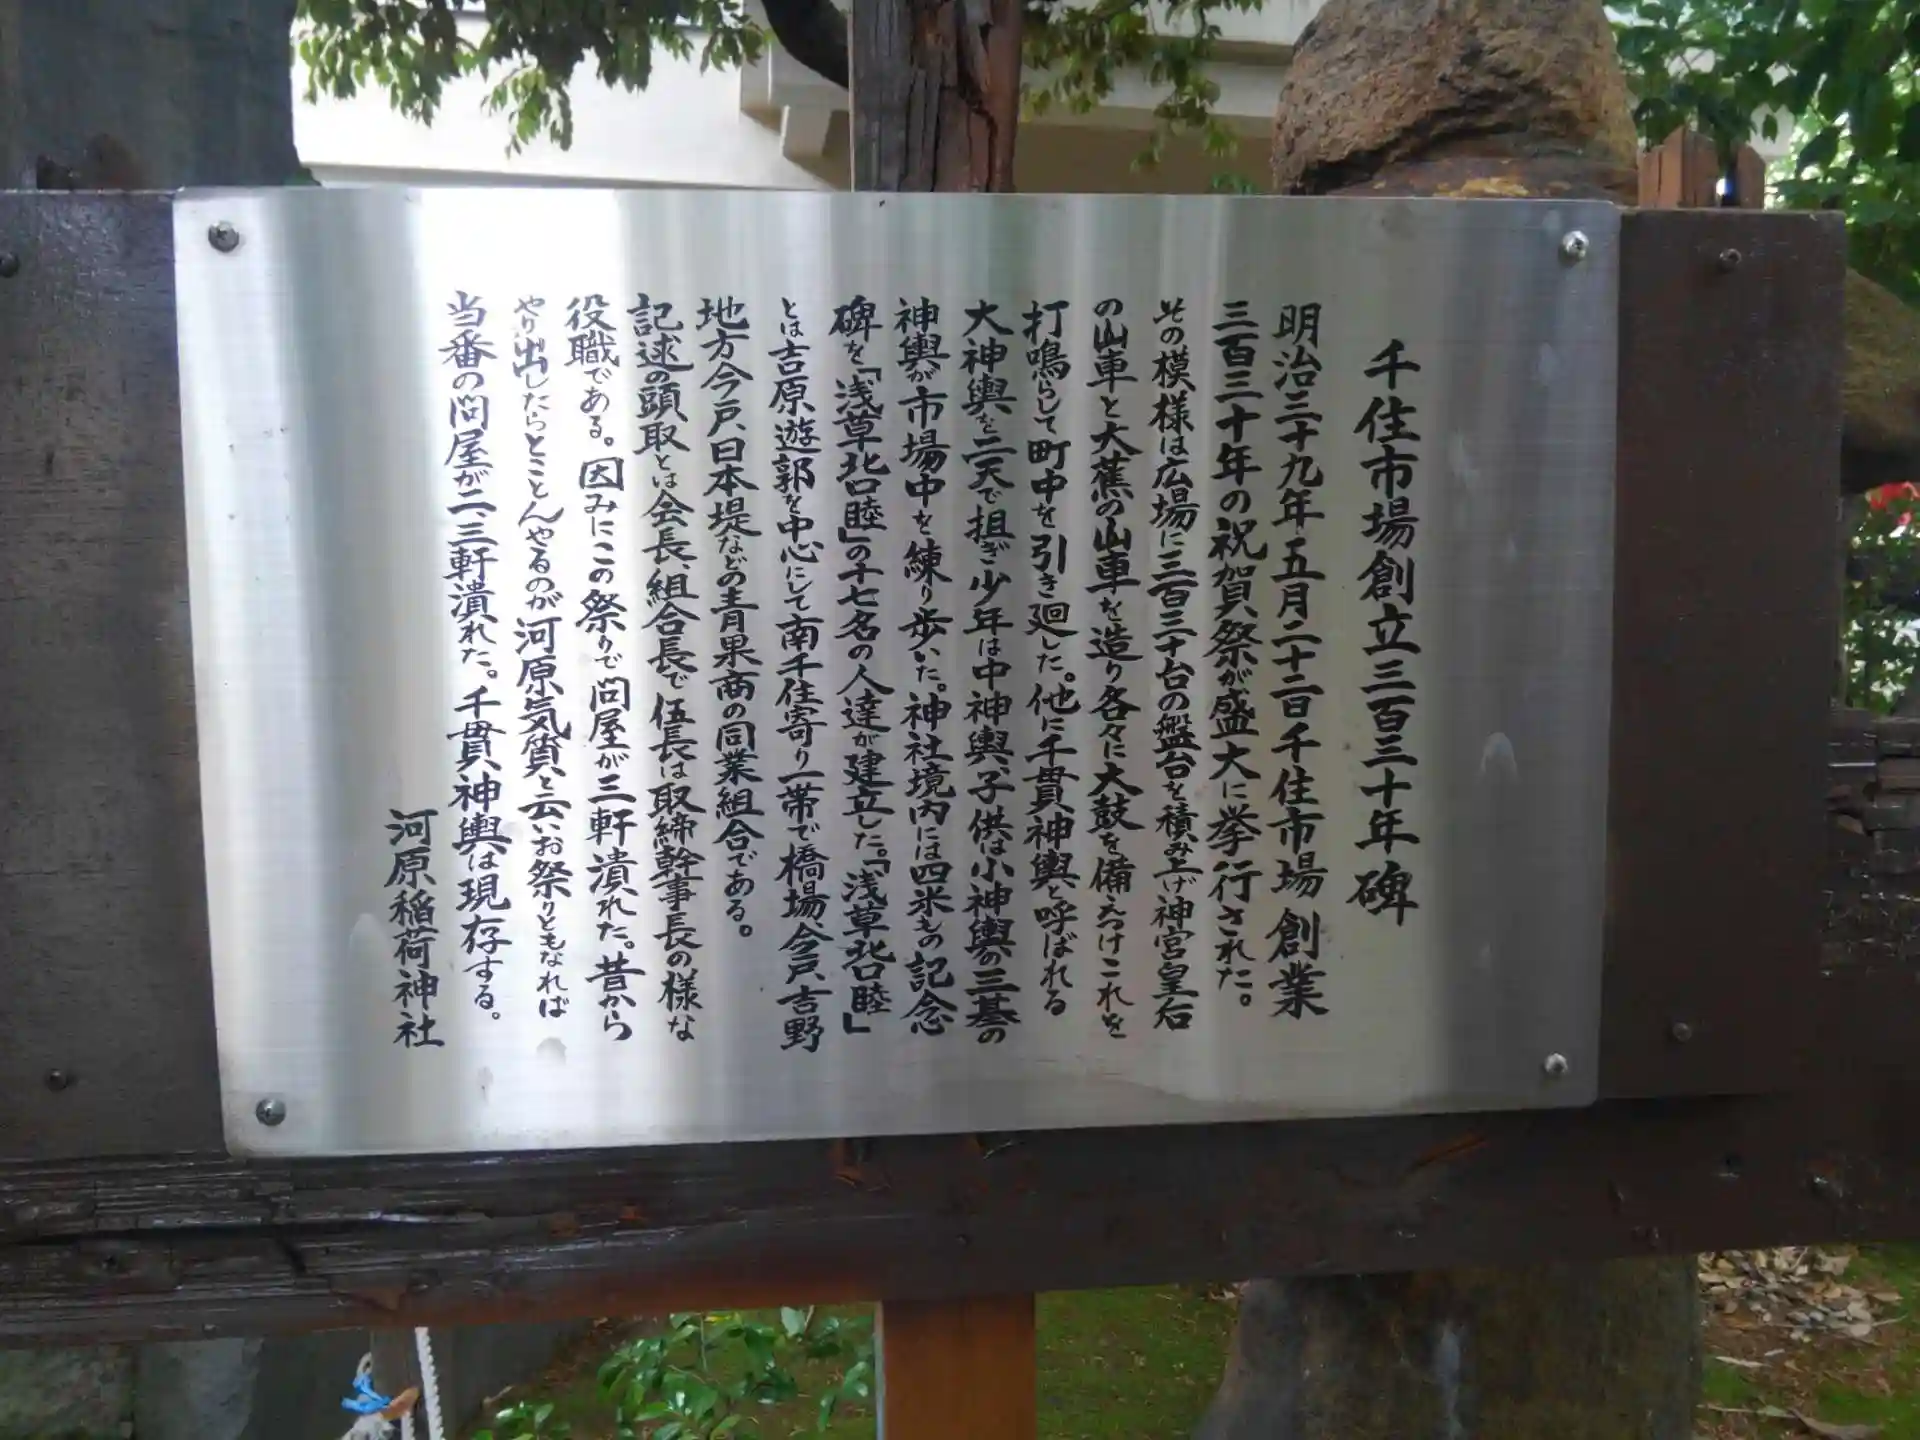 千住市場創立三百三十年碑
明治三十九年五月二十二日千住市場 創業
三百三十年の祝賀祭が盛大に挙行された。
その模様は広場に三百三十台の盤台を積み上げ神宮皇后
の山車と大蕉の山車を造り各々に大鼓を備えつけこれを
打鳴らして町中を引き廻した。他に千貫神輿と呼ばれる
大神輿を二天で担ぎ少年は中神輿、子供は小神輿の三基の
神輿が市場中を練り歩いた。神社境内には四米もの記念
碑を「浅草北口睦」の千七名の人達が建立した。「浅草北口睦」
とは吉原遊郭を中心にして南千住寄り一帯で橋場、今戸、吉野
地方今戸、日本堤などの青果商の同業組合である。
記述の頭取とは会長、組合長で伍長は取締幹事長の様な
役職である。因みにこの祭りで問屋が三軒潰れた。昔から
やり出したらとことんやるのが河原気質と云いお祭りともなれば
当番の問屋が二、三軒潰れた。千貫神輿は現存する。
河原稲荷神社